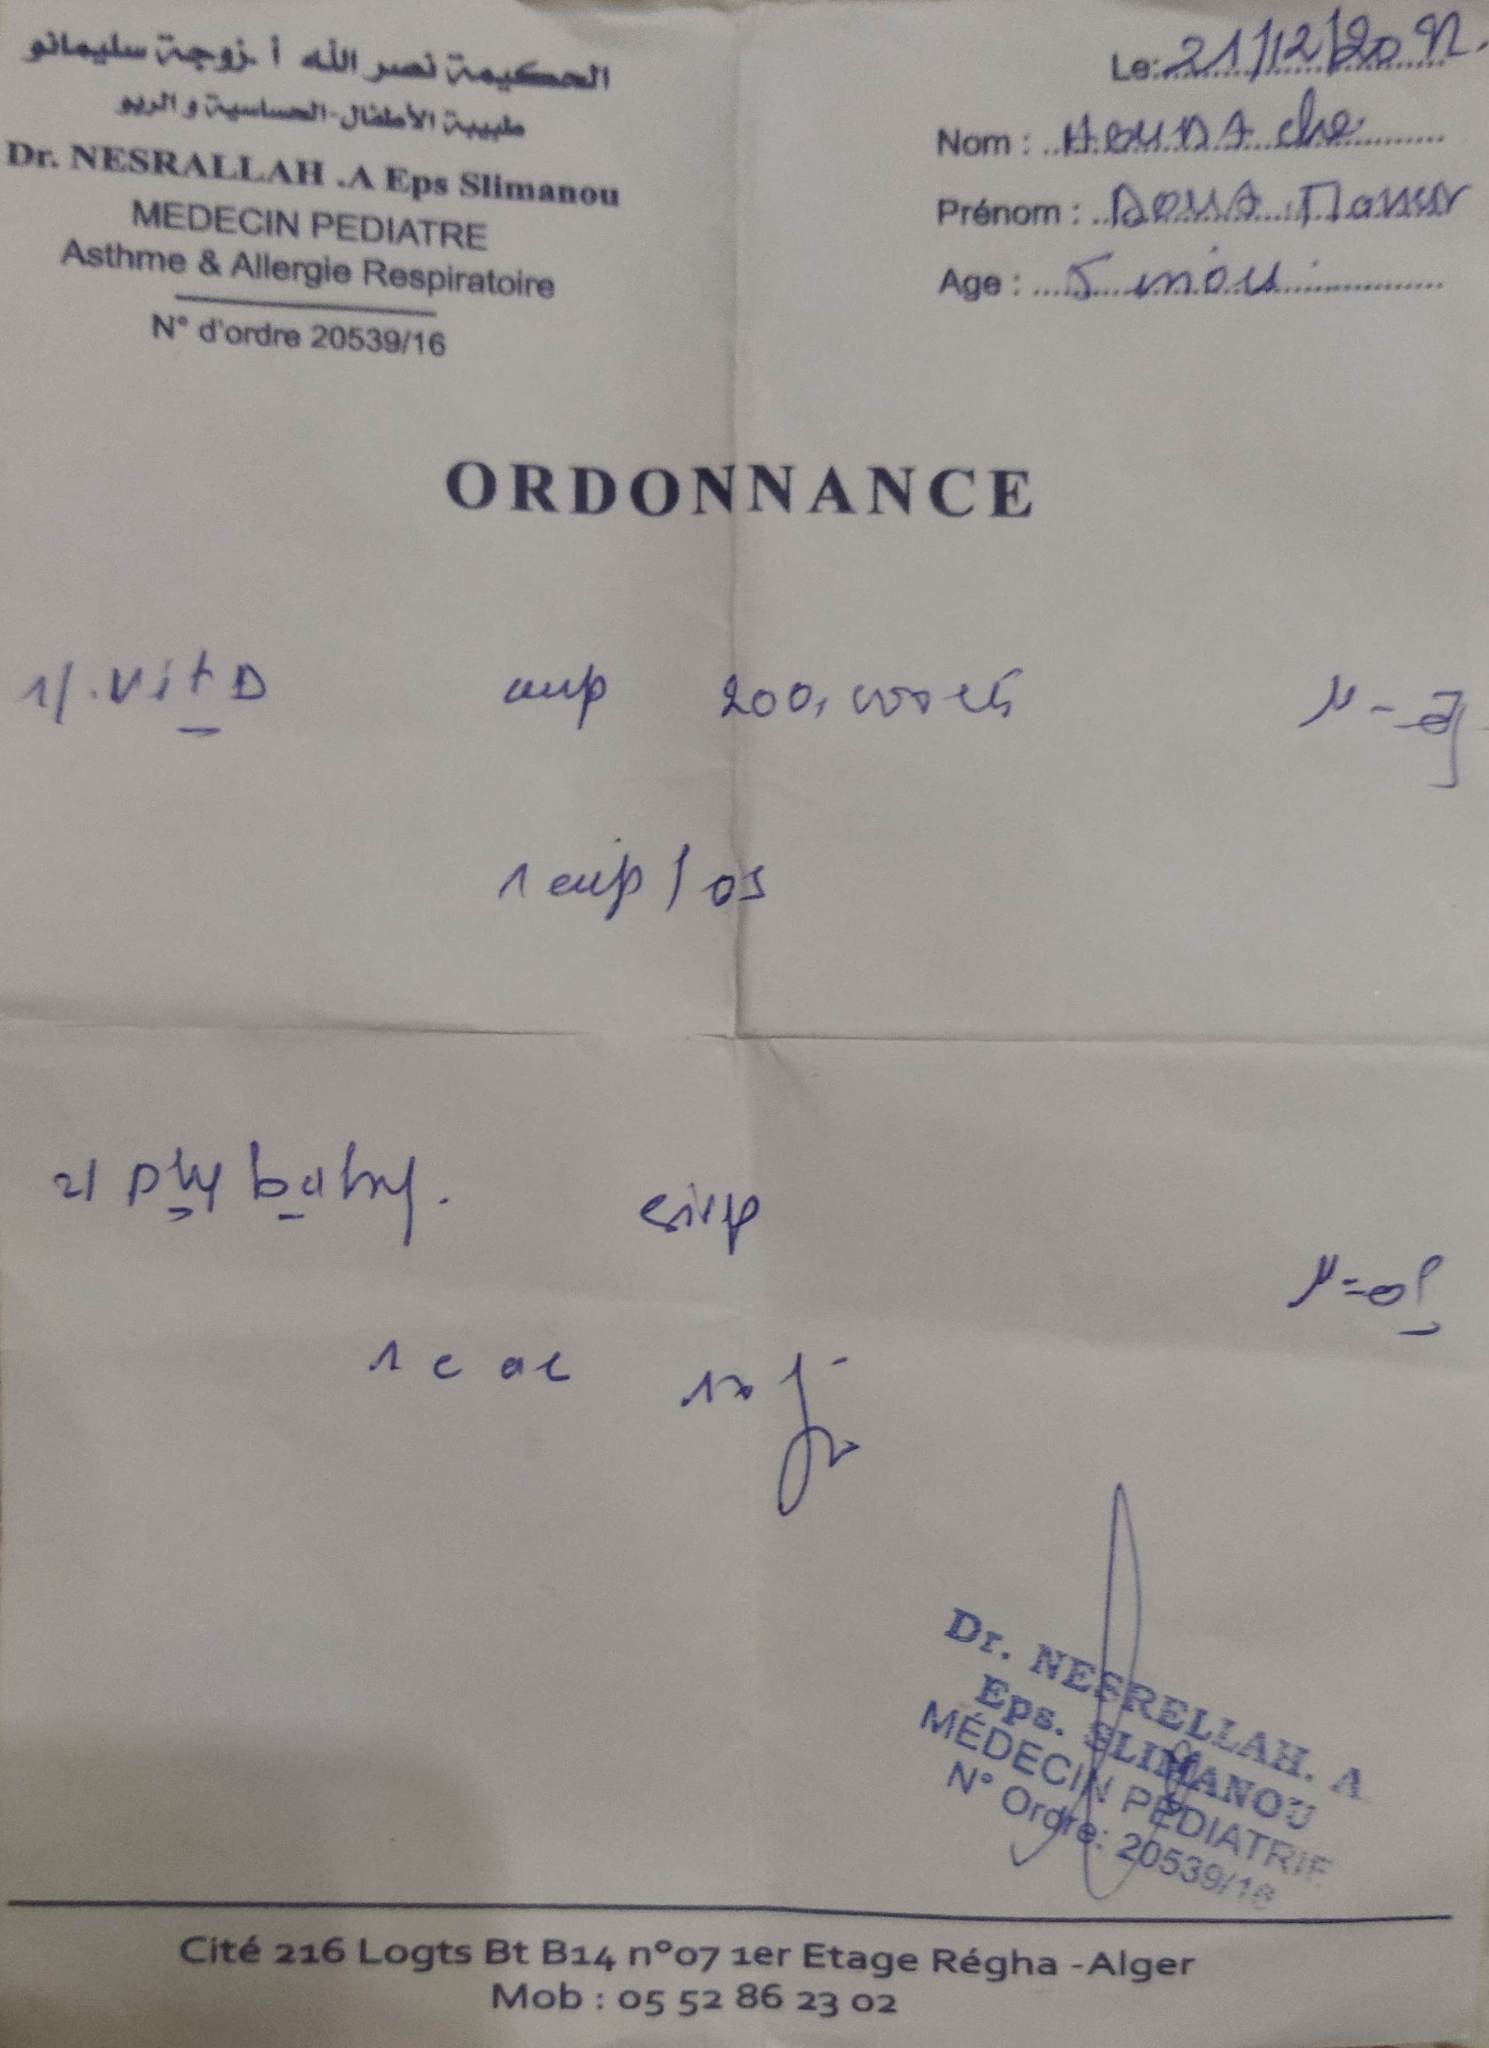 الحكيمة نصر الله أ.زوجة سليمانو
طبيبة الأطفال-الحساسية و الربو
Dr. NESRALLAH .A Eps Slimanou
MEDECIN PEDIATRE
Asthme & Allergie Respiratoire
N° d'ordre 20539/16
Le: 21/12/20
Nom : HOUDA che
Prénom : DOUA
Age : 5 mois
ORDONNANCE
1/. Vit D amp 200,000
1 amp / os
2/ baby. sirop
1 c 1x/j
Dr. NESRELLAH. A
Eps. SLIMANOU
MÉDECIN PEDIATRIE
N° Ordre: 20539/16
Cité 216 Logts Bt B14 n°07 1er Etage Régha -Alger
Mob : 05 52 86 23 02